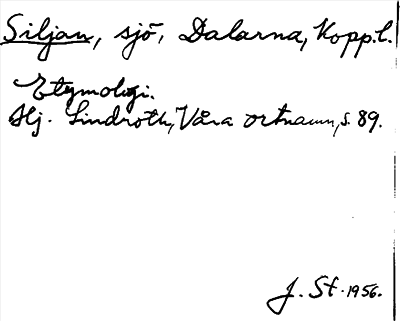 Siljan, sjö, Dalarna, Kopp.l.
Etymologi.
Hj. Lindroth, Våra ortnamn, s. 89.
J. St. 1956.